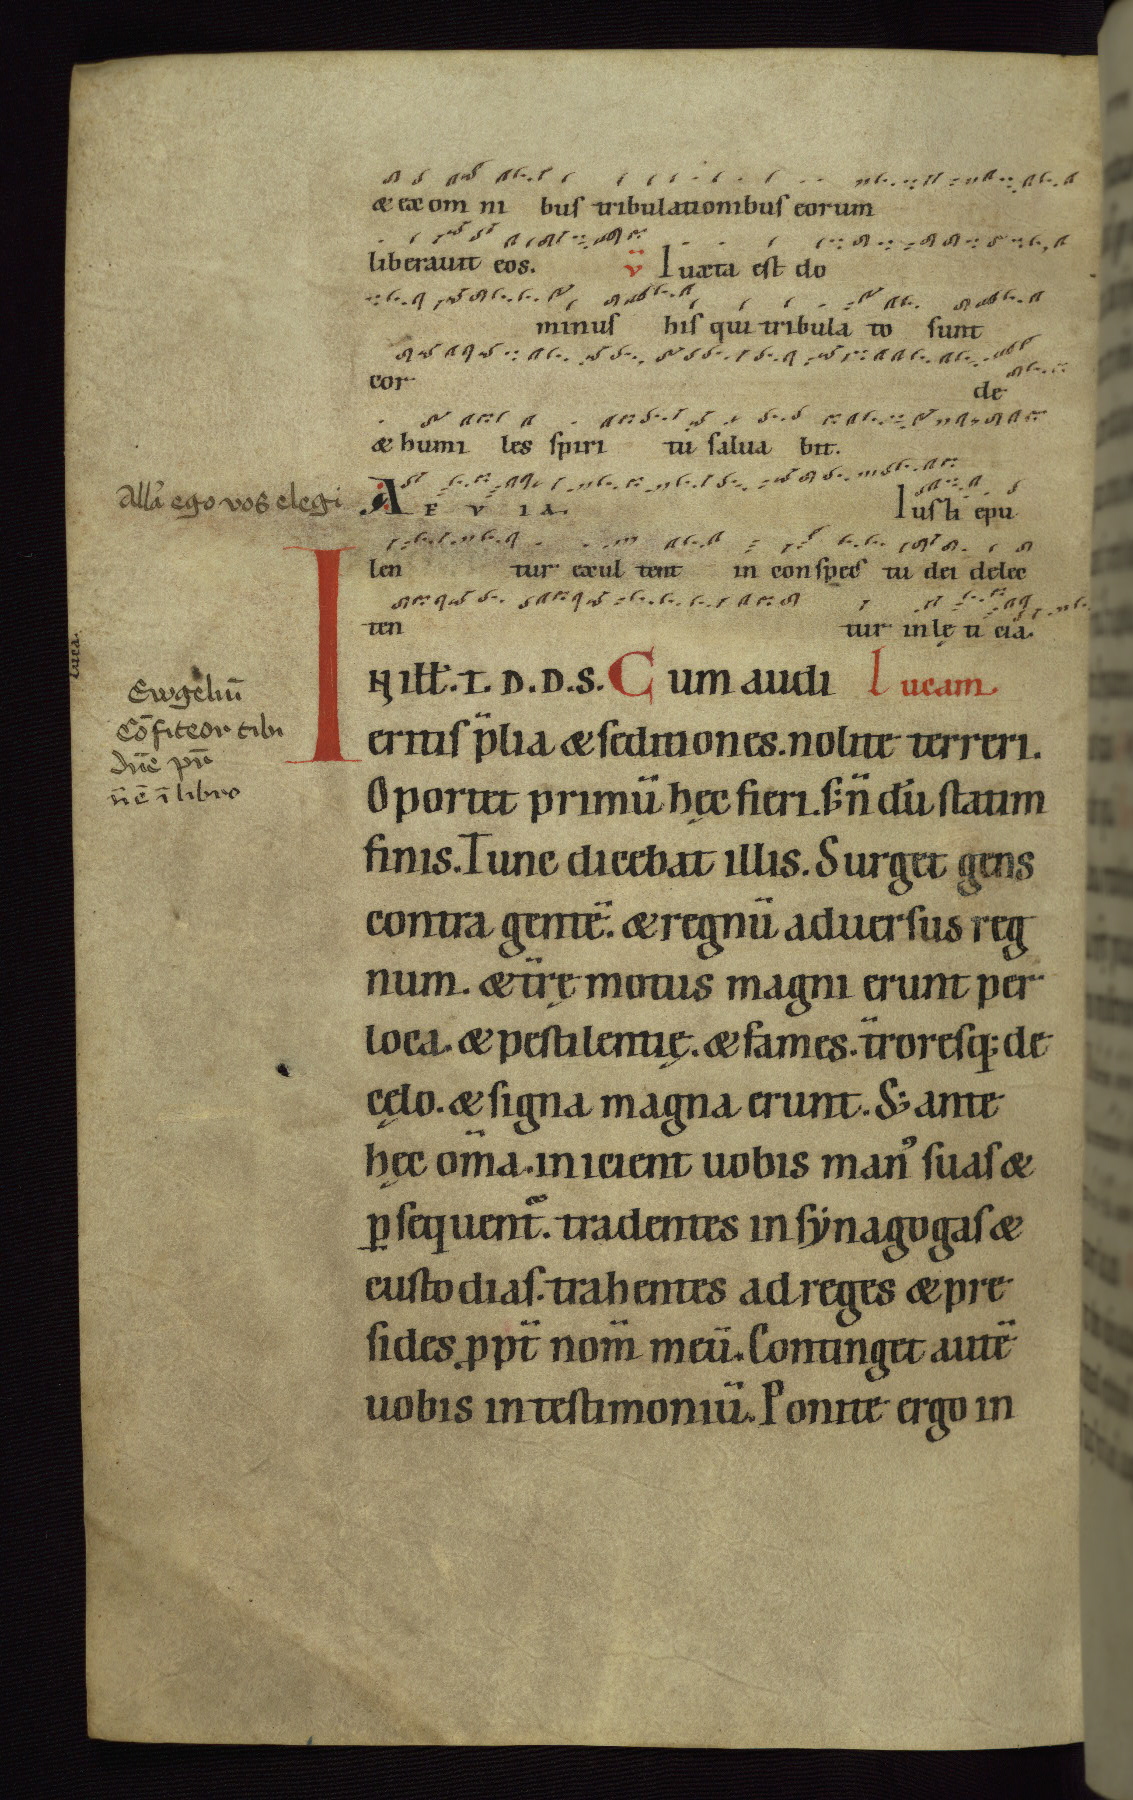 & ex om ni bus tribulationibus eorum
liberauit eos. v̈ Iuxta est do
minus his qui tribula to sunt
cor de
& humi les spiri tū salua bit.
Allā ego vos elegi
A E V I A. Iusti epu
len tur exul tent in conspec tu dei delec
ten tur in lę ti cia.
luca.
IN illł. I. D. D. S. Cum audi Lucam
Ewgeliū
Cōfiteor tibi
dn̄e pr̄e
n̄ē ī libro
eritis p̄lia & seditiones. nolite terreri.
Oportet primū hęc fieri. s; n̄ dū statim
finis. Tunc dicebat illis. Surget gens
contra gentē. & regnū aduersus reg
num. & tr̄rę motus magni erunt per
loca. & pestilentię. & fames. tr̄roresq; de
cęlo. & signa magna erunt. S; ante
hęc om̄a. inicient uobis man᾽ suas &
ꝑsequent᷑. tradentes in synagogas &
custodias. trahentes ad reges & pre
sides ꝓpt̄ nom̄ meū. Continget autē
uobis in testimoniū. Ponite ergo in